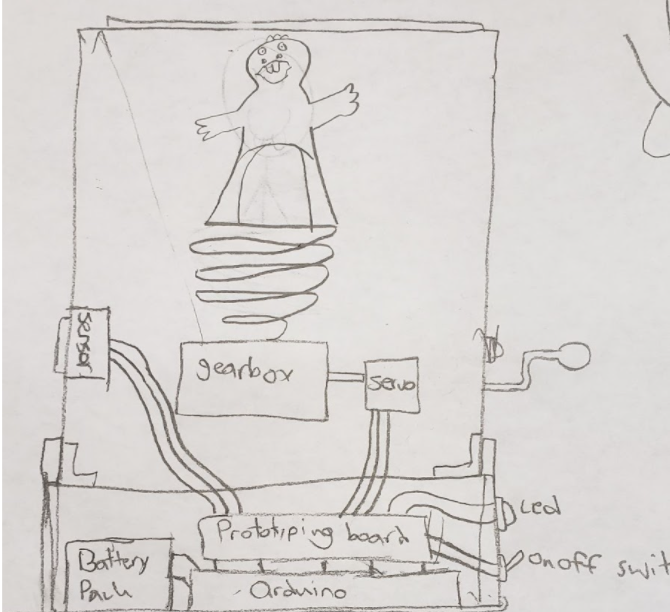 sensor
gearbox
servo
Led
Prototiping board
onoff swit
Battery
Pack
Arduino